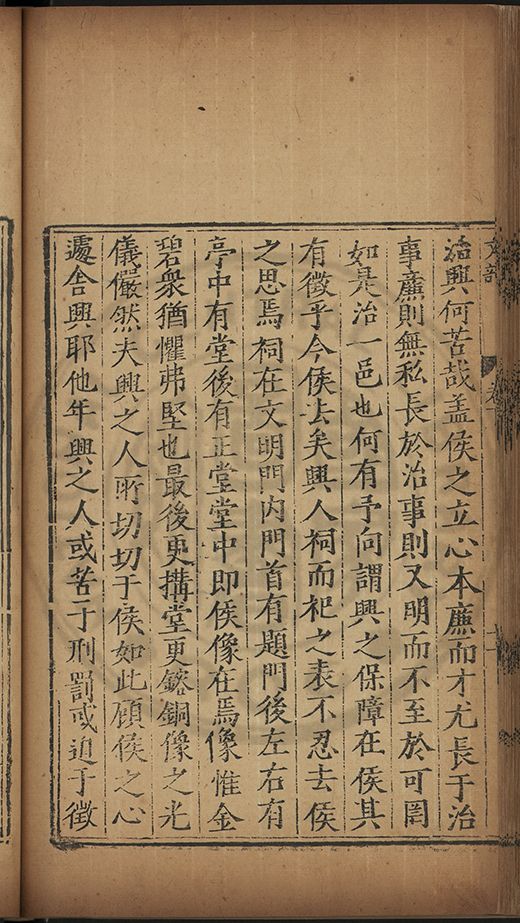 治興何苦哉盖侯之立心本㢘而才尤長于治
事㢘則無私長於治事則又明而不至於可罔
如是治一邑也何有予向謂興之保障在侯其
有徵乎今侯去矣興人祠而祀之表不忍去侯
之思焉祠在文明門内門首有題門後左右有
亭中有堂後有正堂堂中即侯像在焉像惟金
碧衆猶懼弗堅也最後更搆堂更鎔銅像之光
儀儼然夫興之人所切切于侯如此顧侯之心
遽舎興耶他年興之人或苦于刑罰或迫于徵